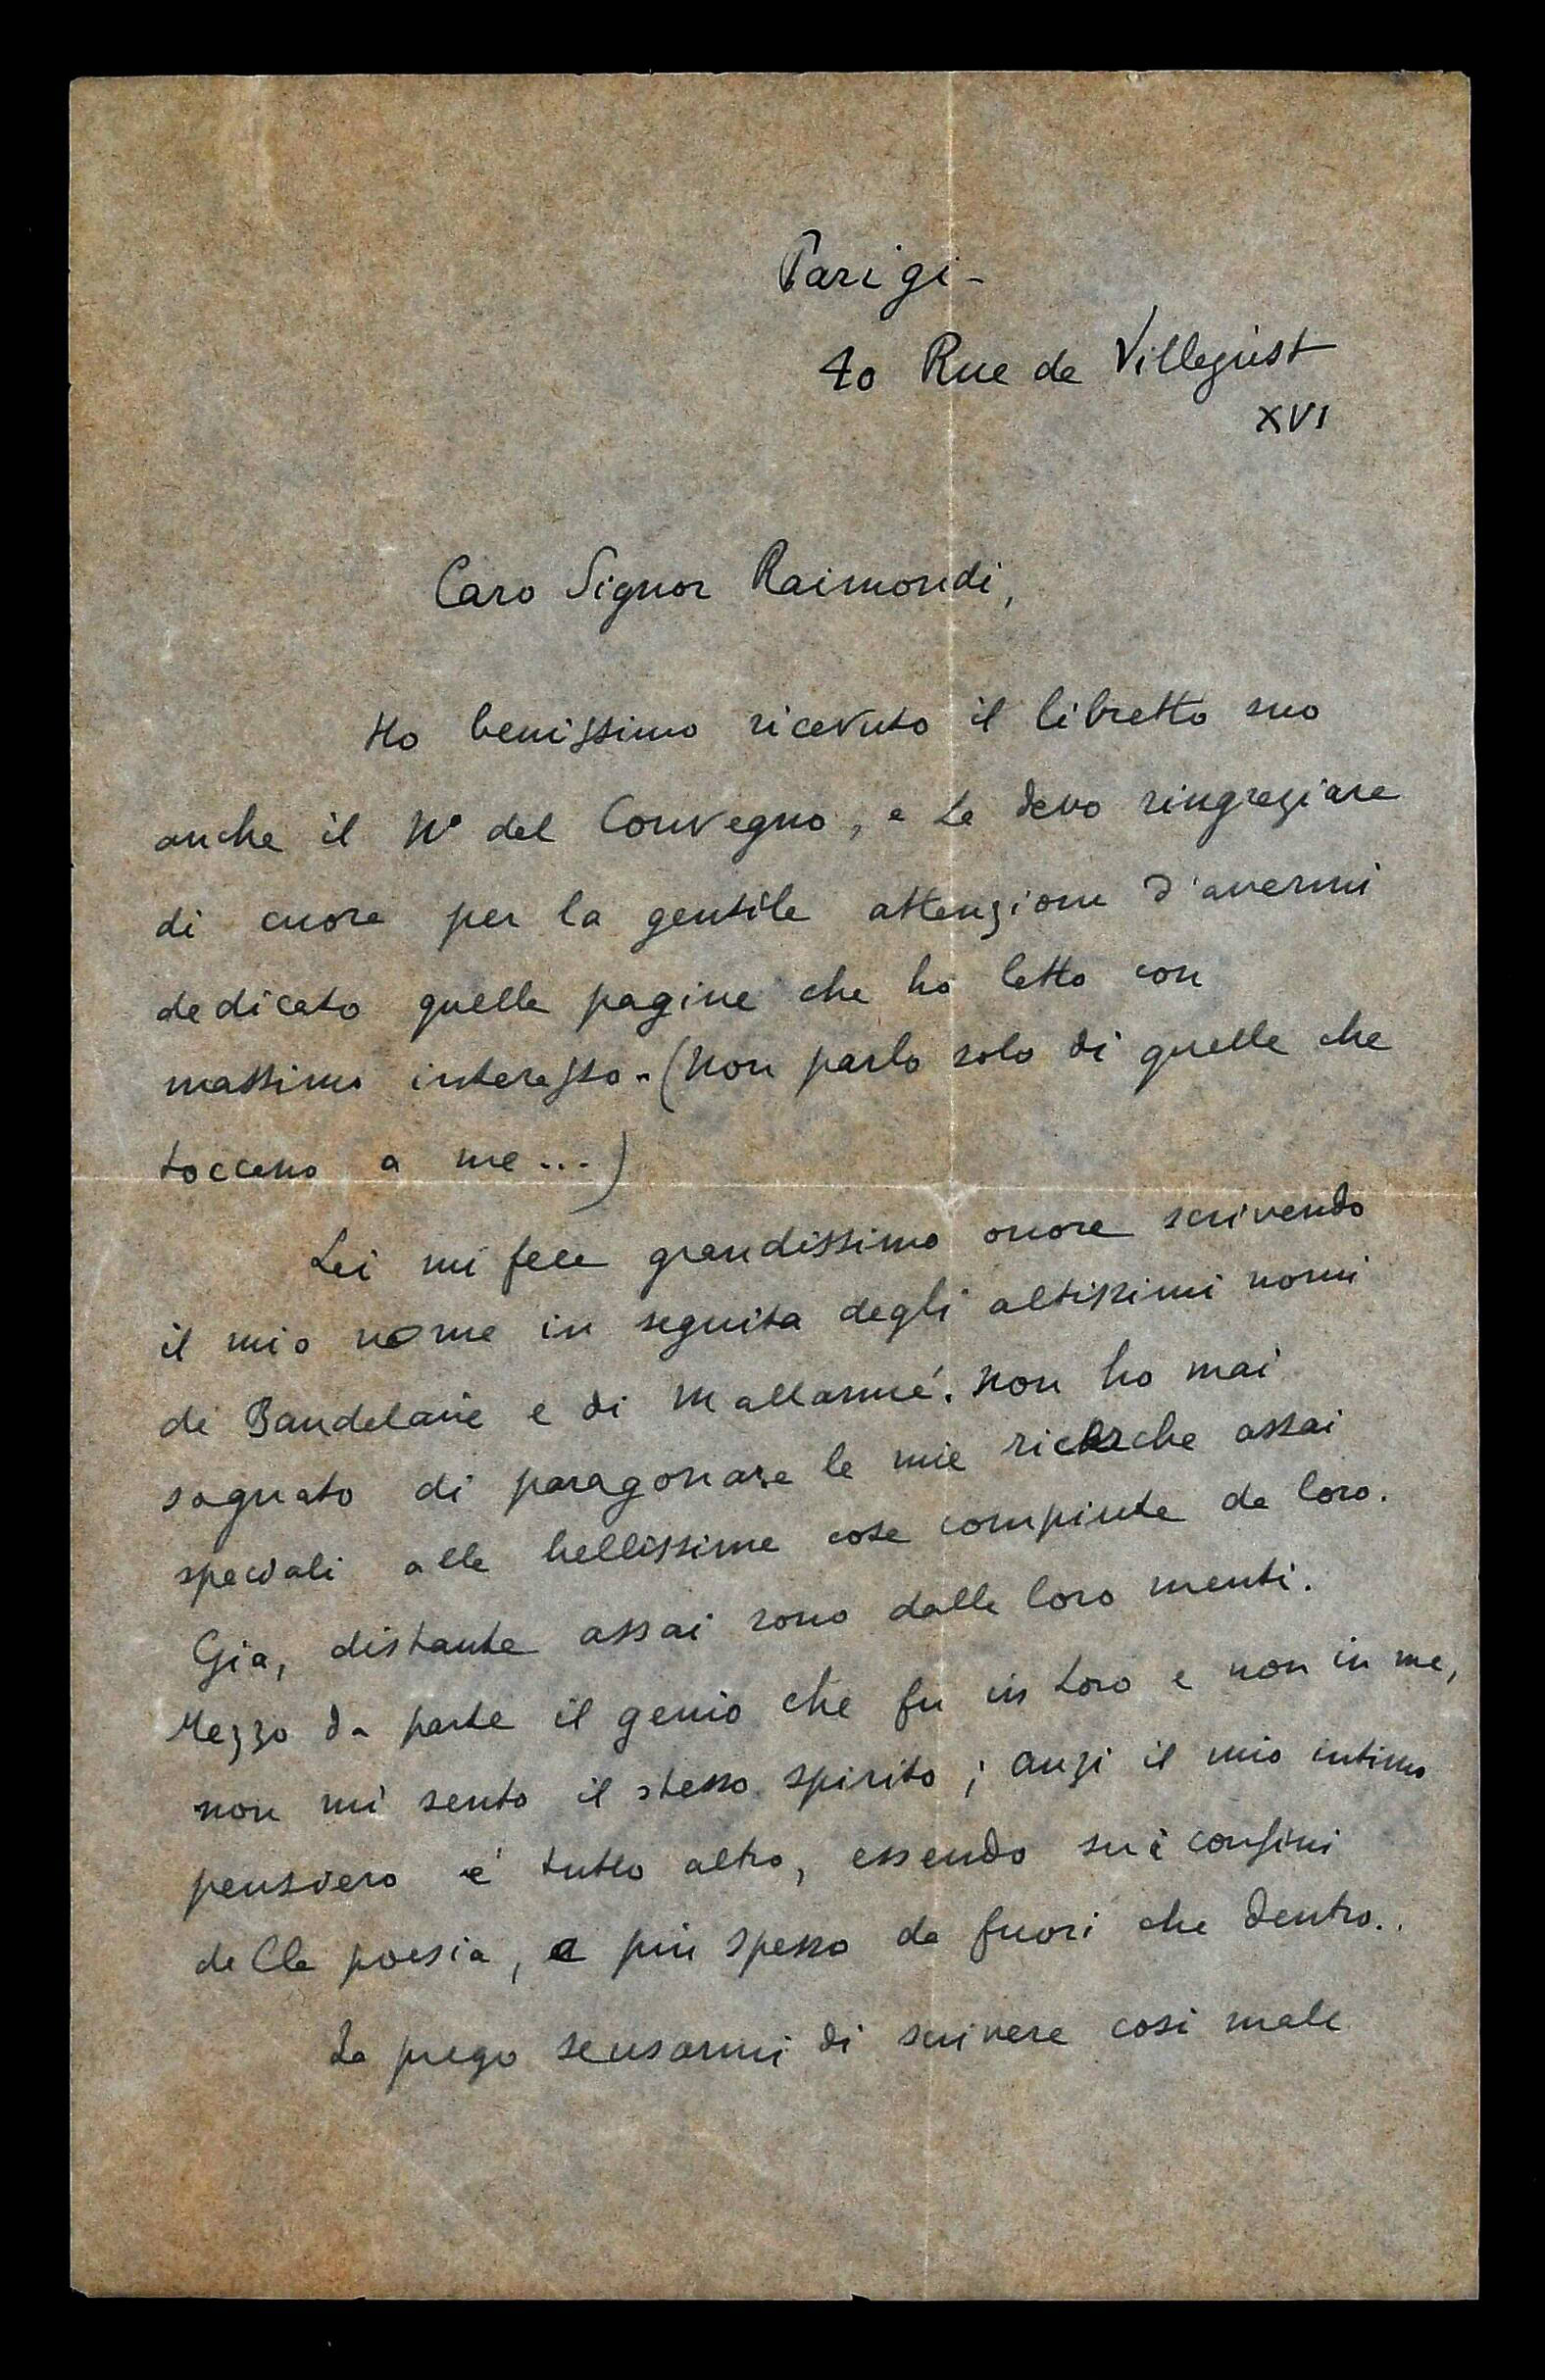 Parigi -
40 Rue de Villejust
XVI
Caro Signor Raimondi,
Ho benissimo ricevuto il libretto suo
anche il Nº del Convegno, e Le devo ringraziare
di cuore per la gentile attenzione d'avermi
dedicato quelle pagine che ho letto con
massimo interesso. (Non parlo solo di quelle che
toccano a me...)
Lei mi fece grandissimo onore scrivendo
il mio nome in seguita degli altissimi nomi
di Baudelaire e di Mallarmé. Non ho mai
sognato di paragonare le mie ricerche assai
speciali alle bellissime cose compiute da loro.
Gia, distante assai sono dalle loro menti.
Mezzo da parte il genio che fu in Loro e non in me,
non mi sento il stesso spirito; anzi il mio intimo
pensiero é tutto altro, essendo sui confini
della poesia, e piu spesso da fuori che dentro..
La prego scusarmi di scrivere cosi male